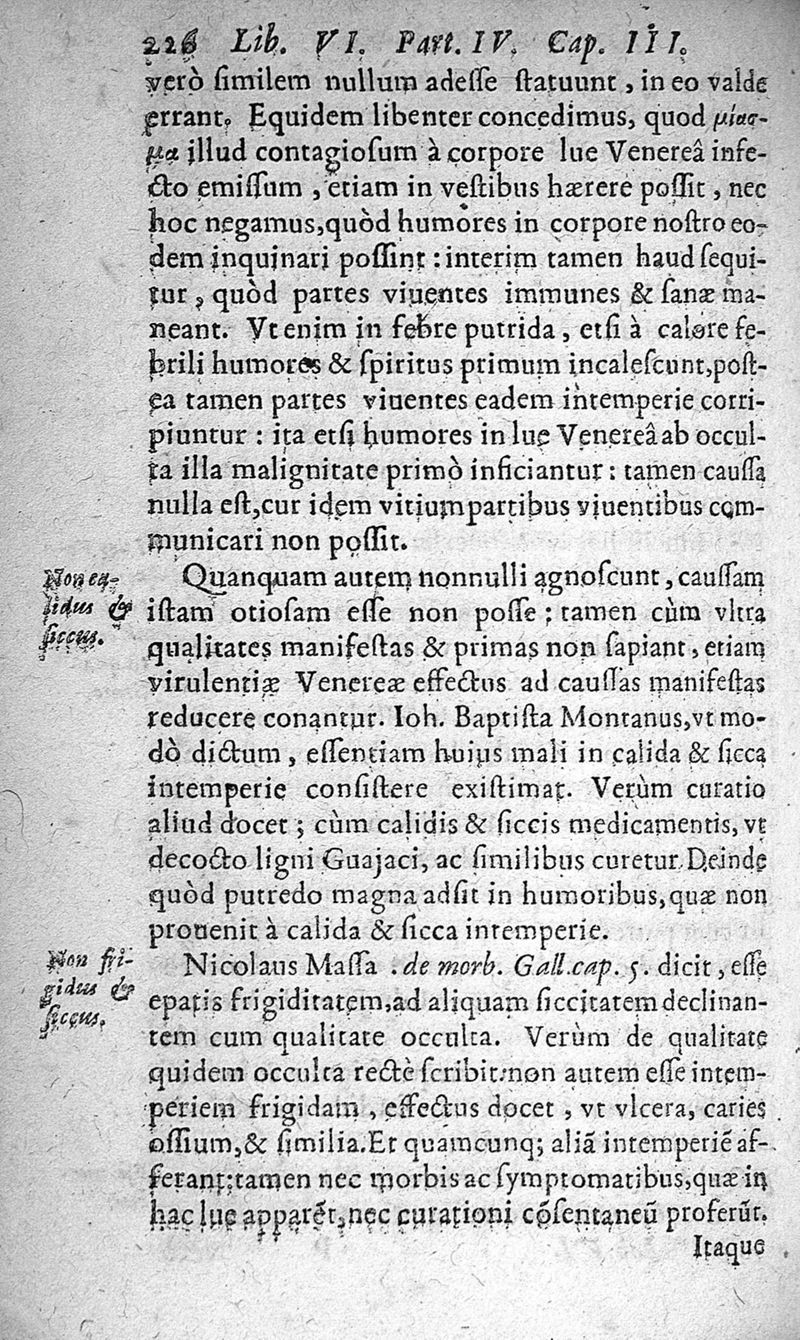 226 Lib. VI. Part. IV. Cap. III.
verò ſimilem nullum adeſſe ſtatuunt, in eo valde
errant. Equidem libenter concedimus, quod μίασ-
μα illud contagioſum à corpore lue Venereâ infe-
cto emiſſum, etiam in veſtibus hærere poſſit, nec
hoc negamus, quòd humores in corpore noſtro eo-
dem inquinari poſſint: interim tamen haud ſequi-
tur, quòd partes viuentes immunes & ſanæ ma-
neant. Vt enim in febre putrida, etſi à calore fe-
brili humores & ſpiritus primum incaleſcunt, poſt-
ea tamen partes viuentes eadem intemperie corri-
piuntur: ita etſi humores in lue Venereâ ab occul-
ta illa malignitate primò inficiantur: tamen cauſſa
nulla eſt, cur idem vitium partibus viuentibus com-
municari non poſſit.
Non ca-
lidus &
ſiccus.
Quanquam autem nonnulli agnoſcunt, cauſſam
iſtam otioſam eſſe non poſſe; tamen cùm vltra
qualitates manifeſtas & primas non ſapiant, etiam
virulentiæ Venereæ effectus ad cauſſas manifeſtas
reducere conantur. Ioh. Baptiſta Montanus, vt mo-
dò dictum, eſſentiam huius mali in calida & ſicca
intemperie conſiſtere exiſtimat. Verùm curatio
aliud docet; cùm calidis & ſiccis medicamentis, vt
decocto ligni Guajaci, ac ſimilibus curetur. Deinde
quòd putredo magna adſit in humoribus, quæ non
prouenit à calida & ſicca intemperie.
Non fri-
gidus &
ſiccus.
Nicolaus Maſſa . de morb. Gall. cap. 5. dicit, eſſe
epatis frigiditatem, ad aliquam ſiccitatem declinan-
tem cum qualitate occulta. Verùm de qualitate
quidem occulta rectè ſcribit: non autem eſſe intem-
periem frigidam, effectus docet, vt vlcera, caries
oſſium, & ſimilia. Et quamcunq; aliã intemperiẽ af-
ferant: tamen nec morbis ac ſymptomatibus, quæ in
hac lue apparẽt, nec curationi cõſentaneũ proferũt.
Itaque